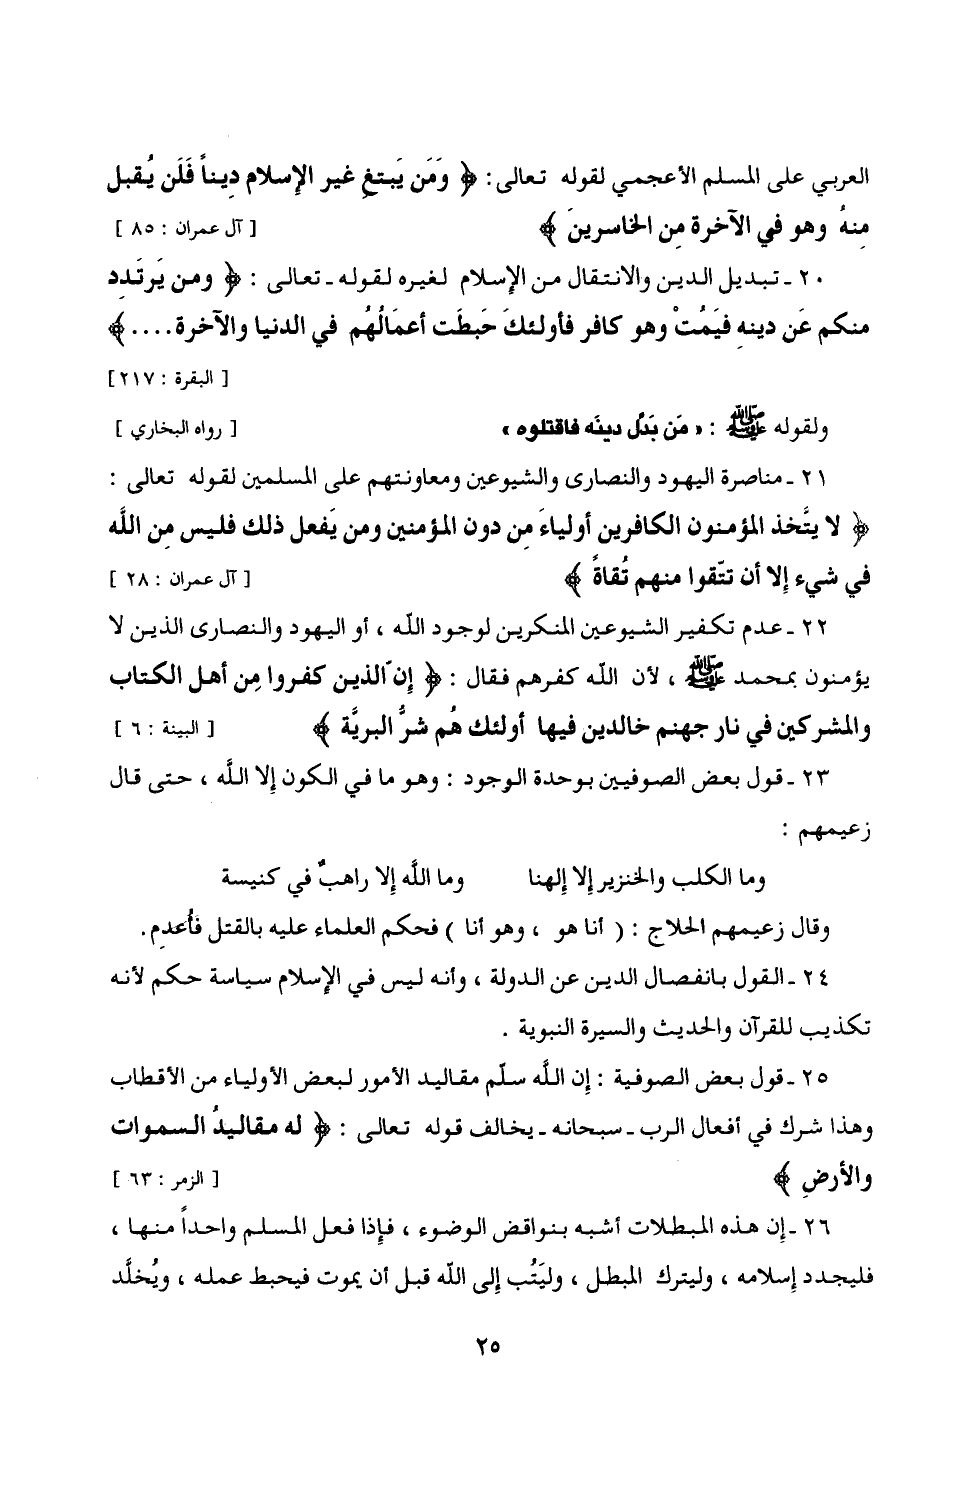 العربي على المسلم الأعجمي لقوله تعالى : ﴿ وَمَن يَبتغِ غير الإسلام دِيناً فَلَن يُقبل
مِنهُ وهو في الآخرة مِن الخاسرينَ ﴾ [ آل عمران : ٨٥ ]
٢٠ - تبديل الدين والانتقال من الإسلام لغيره لقوله - تعالى : ﴿ ومن يَرتَدِد
منكم عَن دينهِ فيَمُتْ وهو كافر فأولئكَ حَبطَت أعمَالُهُم في الدنيا والآخرة .... ﴾
[ البقرة : ٢١٧ ]
ولقوله ﷺ : « مَن بَدَّل دينَه فاقتلوه » [ رواه البخاري ]
٢١ - مناصرة اليهود والنصارى والشيوعين ومعاونتهم على المسلمين لقوله تعالى :
﴿ لا يتَّخذ المؤمنون الكافرين أولياءَ مِن دون المؤمنين ومن يَفعل ذلك فليس مِن الله
في شيء إلا أن تتّقوا منهم تُقاةً ﴾ [ آل عمران : ٢٨ ]
٢٢ - عدم تكفير الشيوعين المنكرين لوجود الله ، أو اليهود والنصارى الذين لا
يؤمنون بمحمد ﷺ ، لأن الله كفرهم فقال : ﴿ إنّ الذين كفروا مِن أهل الكتاب
والمشركين في نار جهنم خالدين فيها أولئك هُم شرُّ البريَّة ﴾ [ البينة : ٦ ]
٢٣ - قول بعض الصوفيين بوحدة الوجود : وهو ما في الكون إلا اللَّه ، حتى قال
زعيمهم :
وما الكلب والخنزير إلا إلهنا وما اللَّه إلا راهبٌ في كنيسة
وقال زعيمهم الحلاج : ( أنا هو ، وهو أنا ) فحكم العلماء عليه بالقتل فأُعدِم .
٢٤ - القول بانفصال الدين عن الدولة ، وأنه ليس في الإسلام سياسة حكم لأنه
تكذيب للقرآن والحديث والسيرة النبوية .
٢٥ - قول بعض الصوفية : إن اللَّه سلّم مقاليد الأمور لبعض الأولياء من الأقطاب
وهذا شرك في أفعال الرب - سبحانه - يخالف قوله تعالى : ﴿ له مقاليدُ السموات
والأرضِ ﴾ [ الزمر : ٦٣ ]
٢٦ - إن هذه المبطلات أشبه بنواقض الوضوء ، فإذا فعل المسلم واحداً منها ،
فليجدد إسلامه ، وليترك المبطل ، وليَتُب إلى الله قبل أن يموت فيحبط عمله ، ويُخلَّد
٢٥